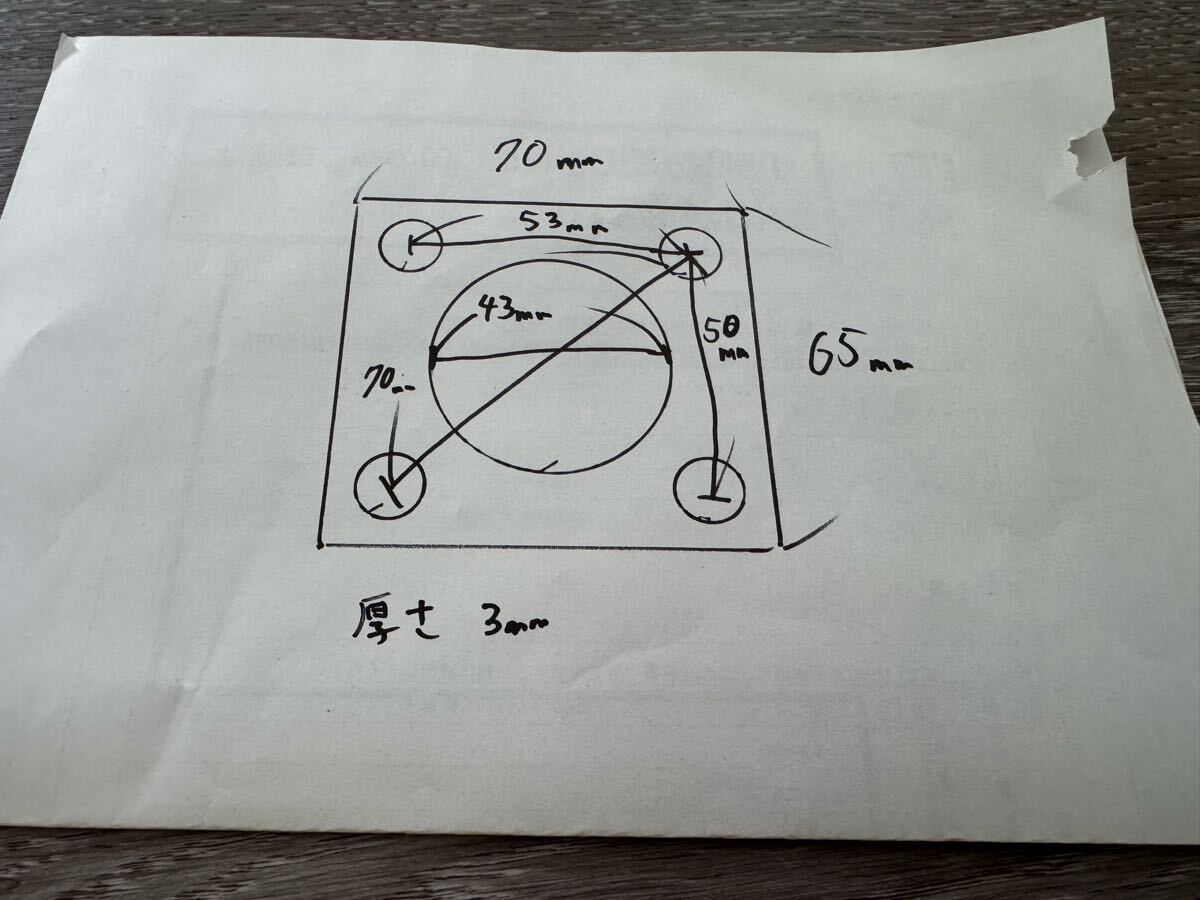 70mm
53mm
43mm
50
mm
65mm
70mm
厚さ 3mm